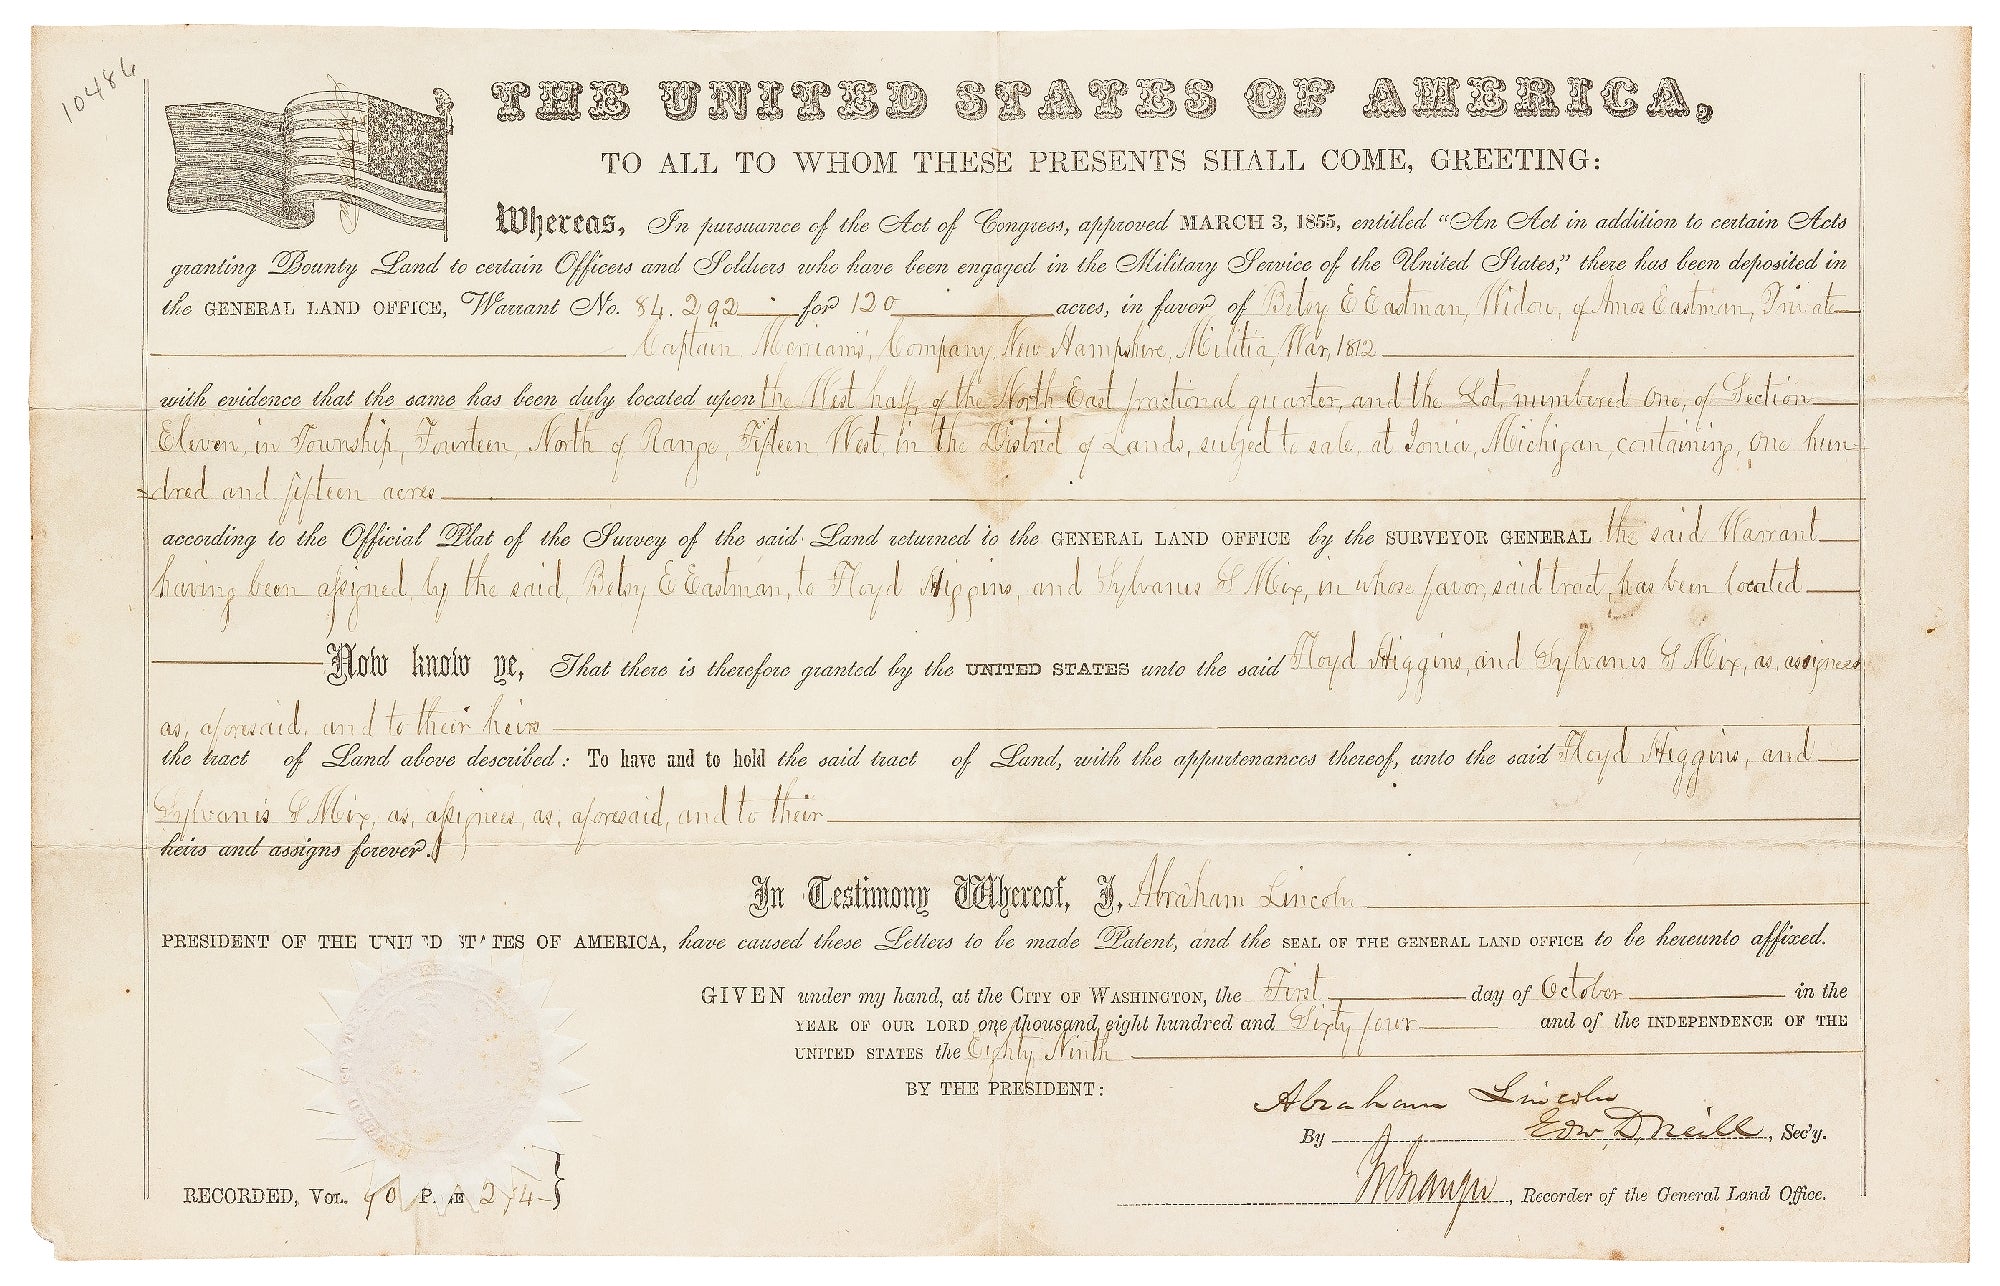 10486
THE UNITED STATES OF AMERICA,
TO ALL TO WHOM THESE PRESENTS SHALL COME, GREETING:
Whereas, In pursuance of the Act of Congress, approved MARCH 3, 1855, entitled “An Act in addition to certain Acts
granting Bounty Land to certain Officers and Soldiers who have been engaged in the Military Service of the United States,” there has been deposited in
the GENERAL LAND OFFICE, Warrant No. 84.292 for 120 acres, in favor of Betsy E Eastman, Widow, of Amos Eastman, Private
Captain Merriam's, Company, New Hampshire, Militia, War, 1812
with evidence that the same has been duly located upon the West half, of the North East fractional quarter, and the Lot, numbered one, of Section
Eleven, in Township, Fourteen, North of Range, Fifteen West, in the District of Lands, subject to sale, at Ionia, Michigan, containing, one hun-
=dred and fifteen acres
according to the Official Plat of the Survey of the said Land returned to the GENERAL LAND OFFICE by the SURVEYOR GENERAL the said Warrant
having been assigned, by the said, Betsy E Eastman, to Floyd Higgins, and Sylvanus S Mix, in whose favor, said tract, has been located
Now know ye, That there is therefore granted by the UNITED STATES unto the said Floyd Higgins, and Sylvanis S Mix, as, assignees
as, aforesaid, and to their heirs
the tract of Land above described: To have and to hold the said tract of Land, with the appurtenances thereof, unto the said Floyd Higgins, and
Sylvanis S Mix, as, assignees, as, aforesaid, and to their
heirs and assigns forever.
In Testimony Whereof, I, Abraham Lincoln
PRESIDENT OF THE UNITED STATES OF AMERICA, have caused these Letters to be made Patent, and the SEAL OF THE GENERAL LAND OFFICE to be hereunto affixed.
GIVEN under my hand, at the CITY OF WASHINGTON, the First day of October in the
YEAR OF OUR LORD one thousand eight hundred and Sixty four and of the INDEPENDENCE OF THE
UNITED STATES the Eighty Ninth
BY THE PRESIDENT: Abraham Lincoln
By Edw. D. Neill, Sec'y.
Recorder of the General Land Office.
RECORDED, VOL. PAGE